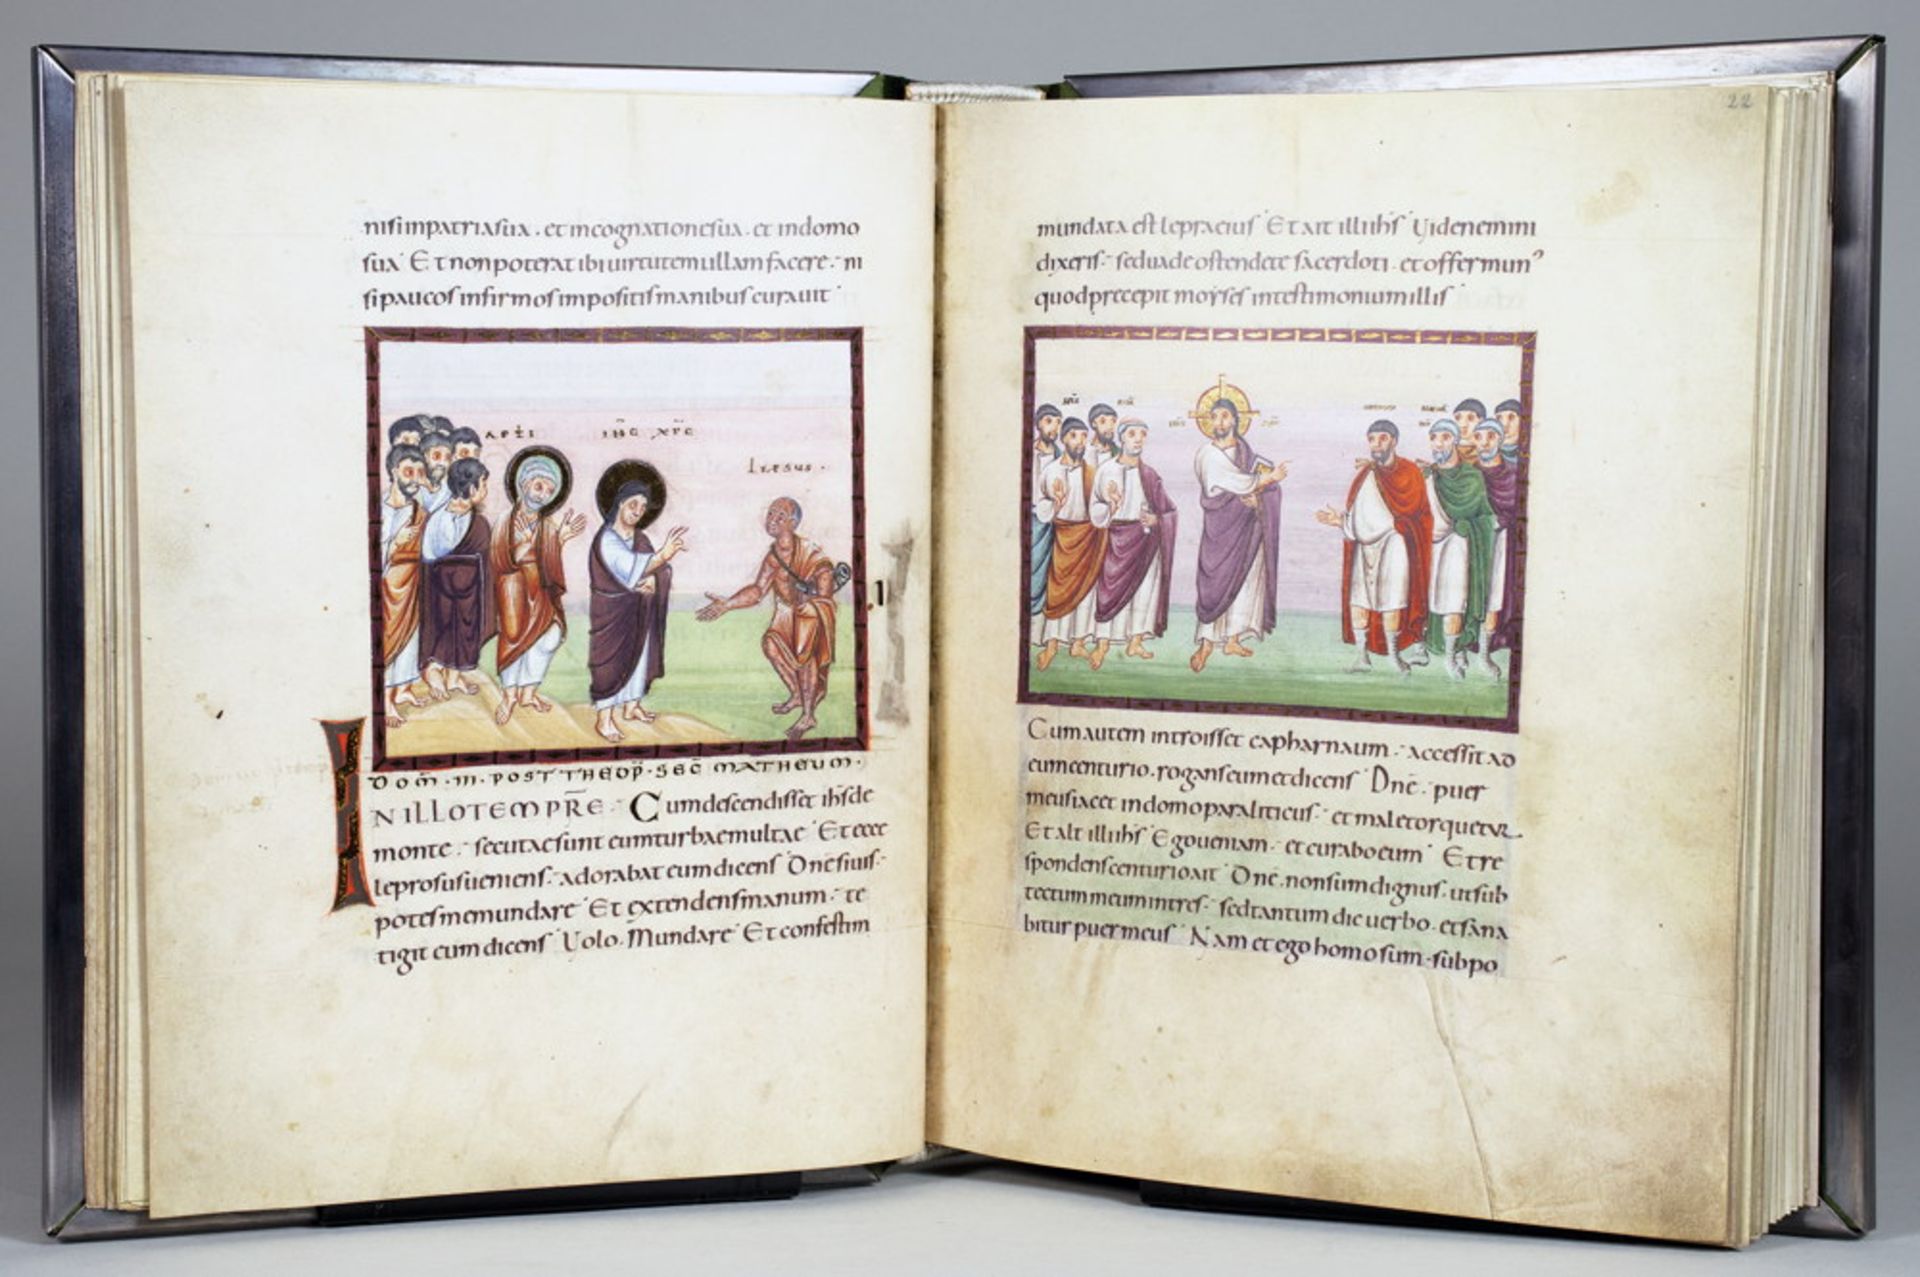 nisi in patria sua · et in cognatione sua · et in domo
sua Et non poterat ibi uirtutem ullam facere · ni
si paucos infirmos impositis manibus curauit
IHC XPC
DOM̄ · III · POST THEOP̄ · SEC̄ MATHEUM ·
IN ILLO TEMPR̄E · Cum descendisset ih̄s de
monte · secutae sunt eum turbae multae Et ecce
leprosus ueniens · adorabat eum dicens Dn̄e si uis ·
potes me mundare Et extendens manum · te
tigit eum dicens Uolo · Mundare Et confestim
22
mundata est lepra eius Et ait illi ih̄s Uide nemini
dixeris · sed uade ostende te sacerdoti · et offer mun⁹
quod precepit moyses in testimonium illis
Cum autem introisset capharnaum · accessit ad
eum centurio · rogans eum et dicens Dn̄e · puer
meus iacet in domo paraliticus · et male torquetur
Et ait illi ih̄s Ego ueniam · et curabo eum Et re
spondens centurio ait Dn̄e · non sum dignus · ut sub
tectum meum intres · sed tantum dic uerbo · et sana
bitur puer meus Nam et ego homo sum · sub po